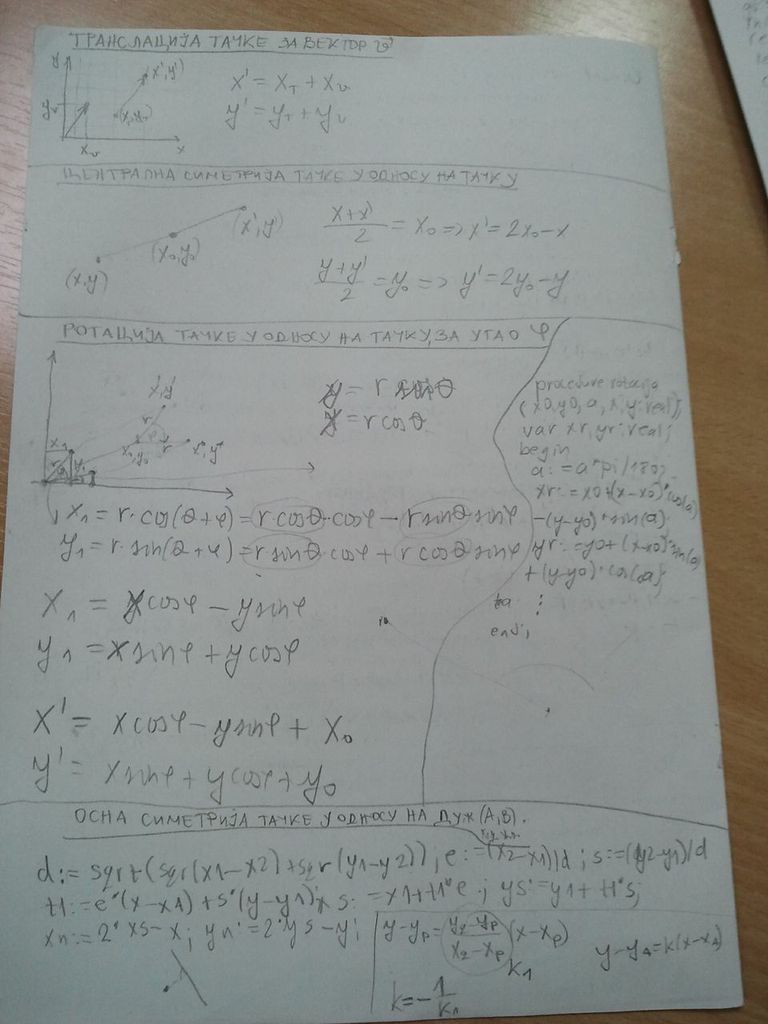 ТРАНСЛАЦИЈА ТАЧКЕ ЗА ВЕКТОР v
y
(x',y')
x' = x_T + x_v
y_v
y' = y_T + y_v
x_v
x
ЦЕНТРАЛНА СИМЕТРИЈА ТАЧКЕ У ОДНОСУ НА ТАЧКУ
(x',y')
(x+x')/2 = x_0 => x' = 2x_0 - x
(x_0,y_0)
(x,y)
(y+y')/2 = y_0 => y' = 2y_0 - y
РОТАЦИЈА ТАЧКЕ У ОДНОСУ НА ТАЧКУ, ЗА УГАО φ
x',y'
y = r sinθ
x = r cosθ
r
x_0,y_0
r
x'',y''
x_1 = r·cos(θ+φ) = r cosθ·cosφ - r sinθ sinφ
y_1 = r·sin(θ+φ) = r sinθ·cosφ + r cosθ sinφ
x_1 = x cosφ - y sinφ
y_1 = x sinφ + y cosφ
x' = x cosφ - y sinφ + x_0
y' = x sinφ + y cosφ + y_0
(x0,y0,a,x,y:real);
var xr,yr:real;
begin
a:=a*pi/180;
xr:=x0+(x-x0)*cos(a)
-(y-y0)*sin(a);
yr:=y0+(x-x0)*sin(a)
+(y-y0)*cos(a);
⋮
end;
ОСНА СИМЕТРИЈА ТАЧКЕ У ОДНОСУ НА ДУЖ (A,B).
d:=sqrt(sqr(x1-x2)+sqr(y1-y2)); e:=(x2-x1)/d; s:=(y2-y1)/d
t1:=e*(x-x1)+s*(y-y1); xs:=x1+t1*e; ys:=y1+t1*s;
xn:=2*xs-x; yn:=2*ys-y;
y-y_p = (y_2-y_p)/(x_2-x_p) (x-x_p)
k_1
y-y_A=k(x-x_A)
k=-1/k_1